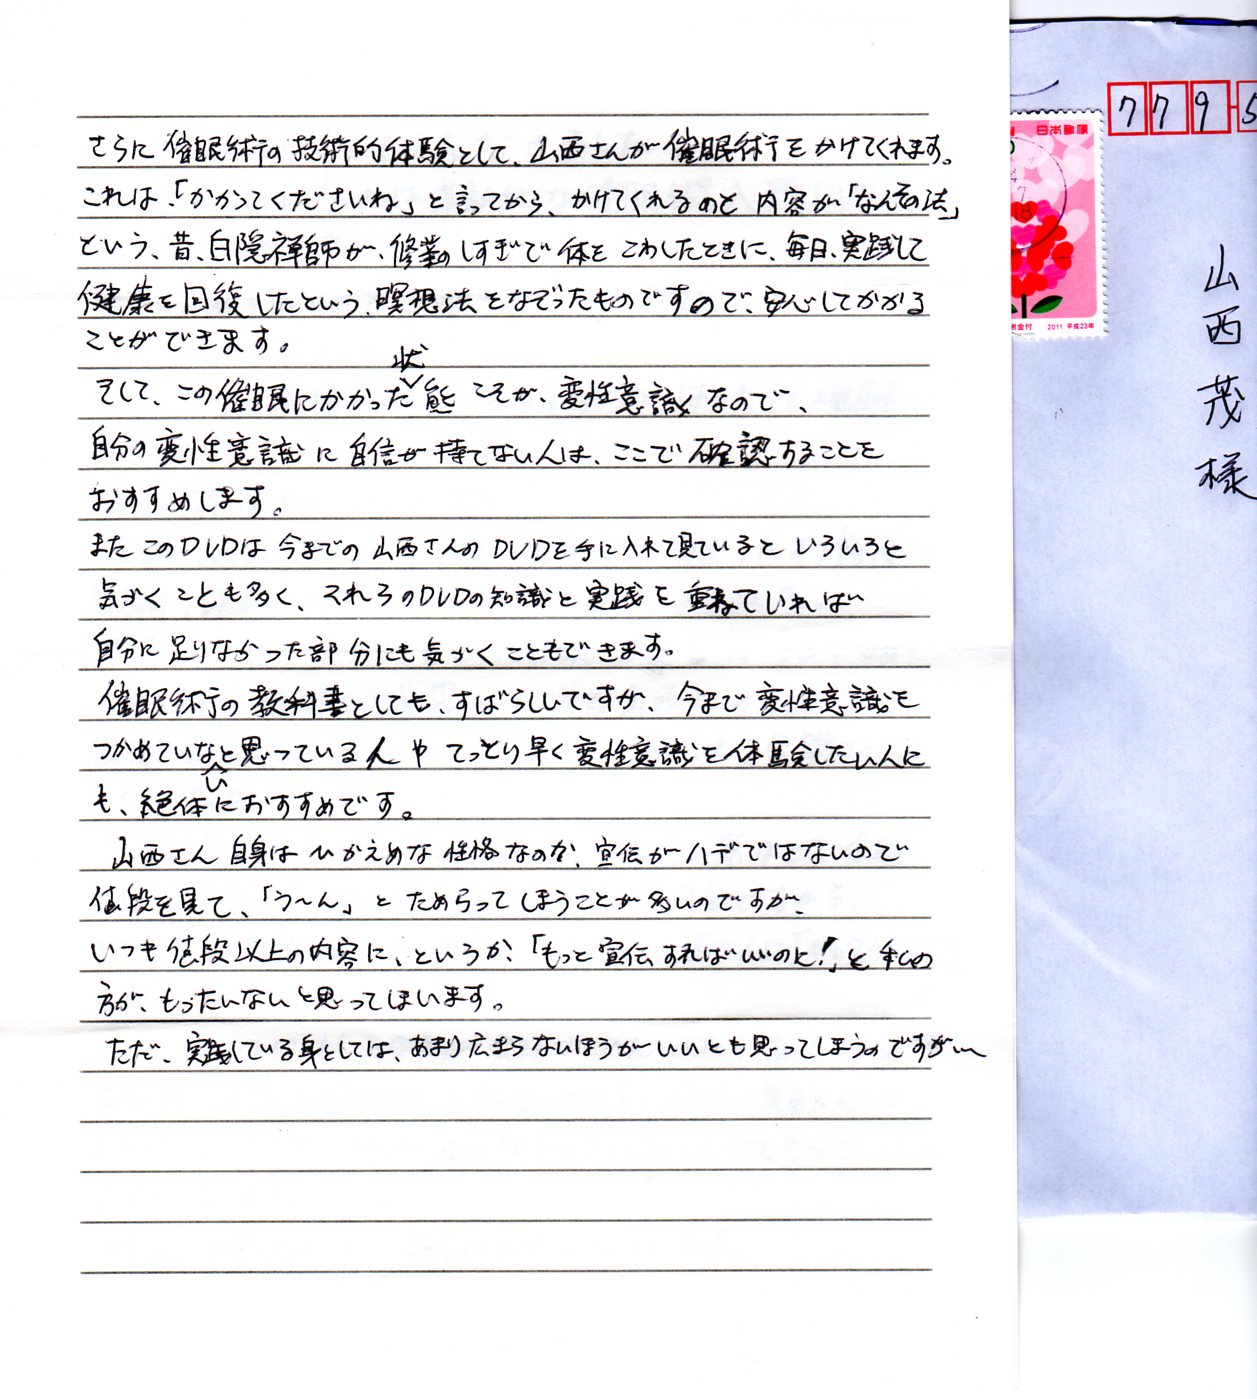 さらに催眠術の技術的体験として、山西さんが催眠術をかけてくれます。
これは、「かかってくださいね」と言ってから、かけてくれるのと内容が「なんその法」
という、昔、白隠禅師が、修業のしすぎで体をこわしたときに、毎日、実践して
健康を回復したという、瞑想法をなぞったものですので、安心してかかる
ことができます。
そして、この催眠にかかった状態こそが、変性意識なので、
自分の変性意識に自信が持てない人は、ここで確認することを
おすすめします。
またこのDVDは今までの山西さんのDVDを手に入れて見ているといろいろと
気がくことも多く、それらのDVDの知識と実践を重ねていれば
自分に足りなかった部分にも気がくこともできます。
催眠術の教科書としても、すばらしいですが、今まで変性意識を
つかめていないと思っている人やてっとり早く変性意識を体験したい人に
も、絶体におすすめです。
山西さん自身はひかえめな性格なのか、宣伝がハデではないので
値段を見て、「う〜ん」とためらってしまうことが多いのですが、
いつも値段以上の内容に、というか、「もっと宣伝すればいいのに!」と私の
方が、もったいないと思ってしまいます。
ただ、実践している身としては、あまり広まらないほうがいいとも思ってしまうのですが…
779-5
日本郵便
7
18
金付
2011 平成23年
山西茂様